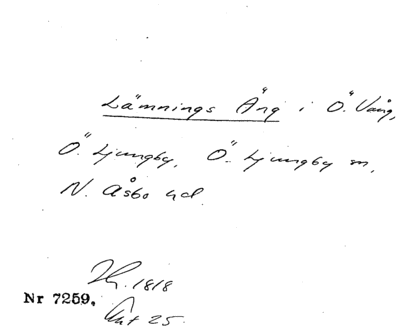 Lämnings Äng i Ö. Vång,
Ö. Ljungby, Ö. Ljungby sn,
N. Åsbo hd.
1818
Nr 7259.
Akt 25.